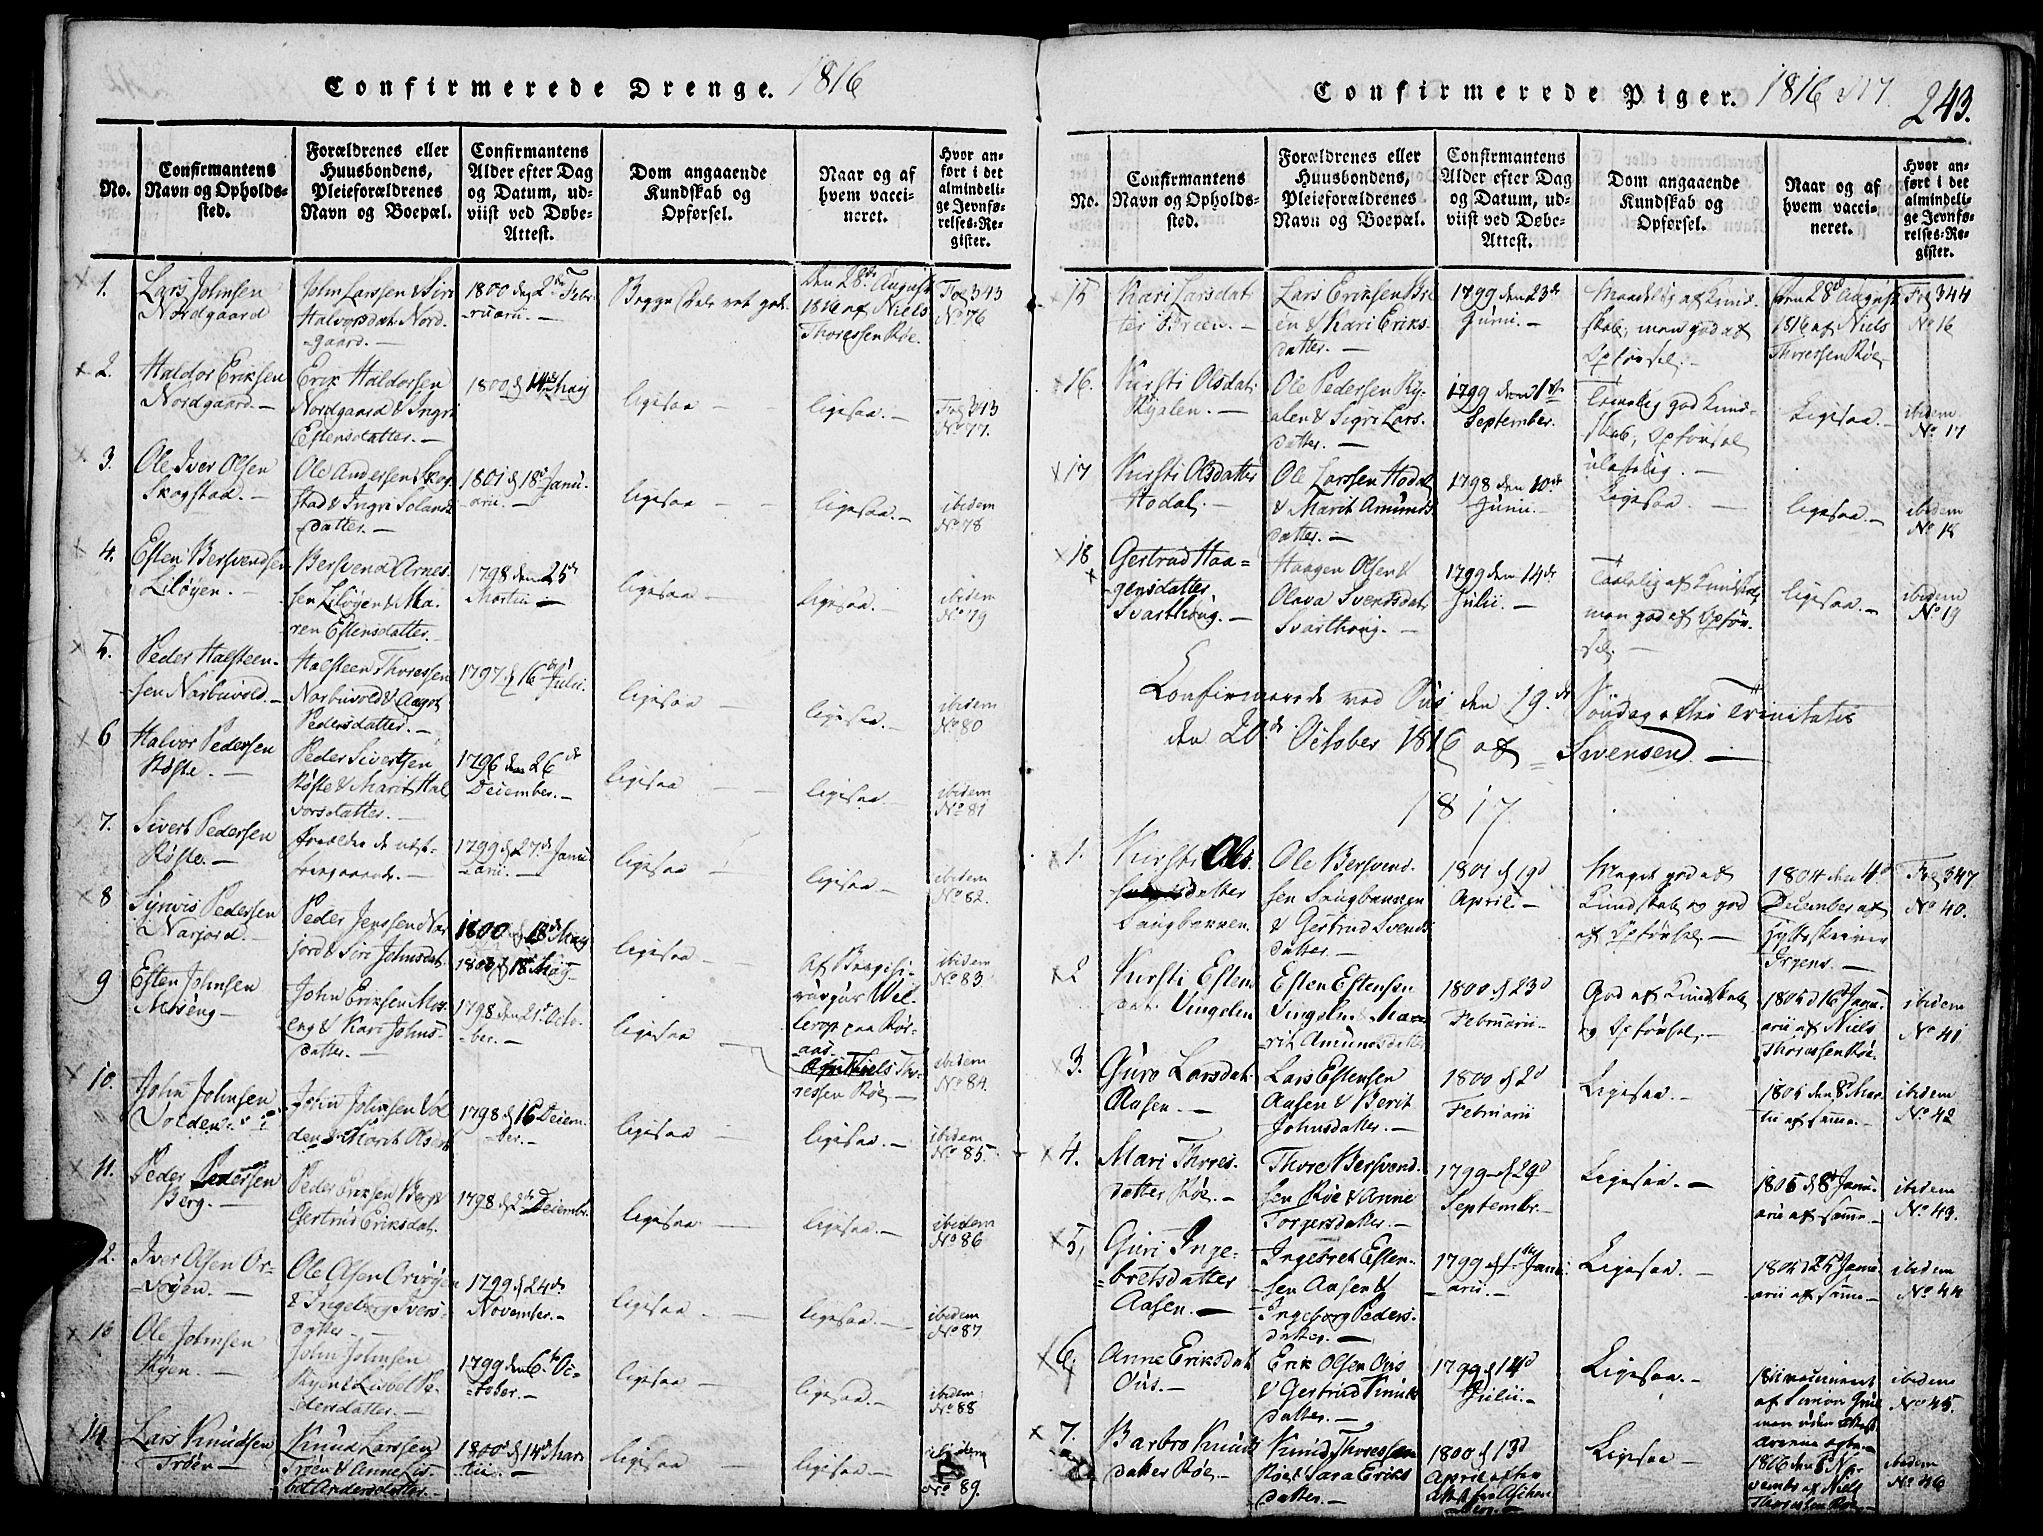 Confirmerede Drenge. 1816
No.
Confirmantens
Navn og Opholds-
sted.
Forældrenes eller
Huusbondens,
Pleieforældrenes
Navn og Boepæl.
Confirmantens
Alder efter Dag
og Datum, ud-
viist ved Døbe-
Attest.
Dom angaaende
Kundskab og
Opførsel.
Naar og af
hvem vacci-
neret.
Hvor an-
ført i det
almindeli-
ge Jevnfø-
relses-Re-
gister.
1.
Lars Johnsen
Nordgaard
John Larssen & Siri
Halvorsdat. Nord-
gaard. —
1800 den 2den Febr
ruarii. —
Begge Dele ret god.
Den 28de August
1816 af Niels
Thoressen Røe.
Fog 343
No 76
2.
Haldor Eriksen
Nordgaard. —
Erik Haldorsen
Nordgaard & Ingri
Estensdatter. —
1800 d 14de Maij
ligesaa —
ligesaa. —
Fog 343
No 77.
3.
Ole Iver Olsen
Skogstad. —
Ole Andersen Skog-
stad & Ingri
datter. —
1801 d 18de Janu-
arii. —
ligesaa — —
ligesaa. —
ibidem
No 78
4.
Esten Bersvendsen
Liløyen. —
Bersvend Arnes-
sen Liløyen & Ma-
ren Estensdatter. —
1798 den 25de
Martii —
ligesaa —
ligesaa. —
ibidem
No 79
5.
Peder Halsteen-
sen Narbuvold. —
Halsteen Thoressen
Narbuvold & Aagot
Pedersdatter. —
1797 d 16de Julii.
ligesaa —
ligesaa —
ibidem
No 80
6
Halvor Pedersen
Røste. —
Peder Sivertsen
Røste & Marit Hal-
vorsdatter. —
1796 den 26de
December. —
ligesaa — —
ligesaa —
ibidem
No 81
7.
Sivert Pedersen
Røste. —
Forældre de næst-
foregaaende. —
1799 d 27de Janu-
arii. —
ligesaa —
ligesaa —
ibidem
No 82.
8
Pedersen
Narjord. —
Peder Jenssen Nar-
jord & Siri Johnsdat.
1800 d 18de Maij
1800 d 18de Maij
ligesaa —
Af
ibidem
No 83.
9
Esten Johnsen
Moseng —
John Eriksen Mos-
eng & Kari Johns-
datter. —
1798 den 21de Octo-
ber. —
ligesaa —
paa Rør-
aas.
Af Niels Tho-
ressen Røe —
ibidem
No 84.
10.
John Johnsen
Volden.
John Johnsen Vol-
den & Marit Olsdat
1798 d 16 Decem-
ber. —
ligesaa —
ligesaa. —
ibidem
No 85. —
11.
Peder Pedersen
Berg. —
Peder Eriksen Berg &
Gertrud Eriksdat.
1798 d 2den Decembr.
ligesaa —
ligesaa. —
ibidem
No 86
12.
Iver Olsen Or-
vøyen. —
Ole Olsen Orvøyen
& Ingeborg Ivers-
datter —
1799 d 24de
November. —
ligesaa —
ligesaa. —
ibidem
No 87
13
Ole Johnsen
Ryen. —
John Johnsen
Ryen & Lisbet Pe-
dersdatter. —
1799 den 6te Oc-
tober. —
ligesaa —
ligesaa. —
ibidem
No 88
14
Lars Knudsen
Trøen —
Knud Larssen
Trøen & Anne Lis-
bet Andersdatter. —
1800 d 14de Mar-
tii. —
ligesaa —
ligesaa —
ibidem
No 89.
Confirmerede Piger. 1816 & 17
243.
No.
Confirmantens
Navn og Opholds-
sted.
Forældrenes eller
Huusbondens,
Pleieforældrenes
Navn og Boepæl.
Confirmantens
Alder efter Dag
og Datum, ud-
viist ved Døbe-
Attest.
Dom angaaende
Kundskab og
Opførsel.
Naar og af
hvem vacci-
neret.
Hvor an-
ført i det
almindeli-
ge Jevnfø-
relses-Re-
gister.
15
Kari Larsdat-
ter Breen. —
Lars Eriksen Bre-
en & Kari Eriks-
datter. —
1799 den 23de
Junii. —
Maadelig af Kund-
skab, men god af
Opførsel. —
Den 28de August
1816 af Niels
Thoressen Røe
Fog 344
No 16
16.
Kirsti Olsdat.
Ryalen. —
Ole Pedersen Ry-
alen & Sigri Lars-
datter. —
1799 den 21de
September.
Temelig god Kund-
skab, Opførsel
ulastelig. —
Ligesaa. —
ibidem
No 17
17
Kirsti Olsdatter
Hodal. —
Ole Larssen Hodal
& Marit Amunds-
datter. —
1798 den 10de
Junii. —
Ligesaa. —
ligesaa. —
ibidem
No 18
18
Gertrud Haa-
gensdatter
Svarthoug. —
Haagen Olsen &
Olava Svendsdat.
Svarthoug. —
1799 den 14de
Julii. —
Taalelig af Kundskab,
men god af Opfør-
sel. —
ligesaa. —
ibidem
No 19
Confirmerede ved Ous den 19de Søndag efter Trinitatis
den 20de October 1816 af Svensen —
1817
1.
Kirsti Ols-
datter
Langbakken
Ole Bersvend-
sen Langbakken
& Gertrud Svends-
datter. —
1801 d 19d
April. —
Meget god af
Kundskab og god
af Opførsel. —
1804 den 4de
December af
Hytteskriver
Irgens. —
Fog 347
No 40.
2
Kirsti Estens-
dat. Vingelen
Esten Estensen
Vingelen & Mar-
rit Amundsdatter
1800 d 23d
Februarii. —
God af Kundskab
og Opførsel. —
1805 d 16de Janu-
arii af Niels
Thoressen Røe.
ibidem
No 41
3.
Guro Larsdat.
Aasen. —
Lars Estensen
Aasen & Berit
Johnsdatter. —
1800 d 2d
Februarii
Ligesaa. —
1805 den 8de Mar-
tii af samme. —
ibidem
No 42
4.
Mari Thores-
datter Røe. —
Thore Bersvend-
sen Røe & Anne
Torgersdatter. —
1799 d 29d
Septembr. —
Ligesaa. —
1805 d 8de Janu-
arii af samme —
ibidem
No 43.
5,
Guri Inge-
bretsdatter
Aasen. —
Ingebret Esten-
sen Aasen &
Ingeborg Peders-
datter. —
1799 d 1ste Janu-
arii —
Ligesaa. —
1805 d 25de Janu-
arii af samme —
ibidem
No 44
6.
Anne Eriksdat
Ous. —
Erik Olsen Ous
& Gertrud Knuds-
datter. —
1799 d 14d
Julii. —
Ligesaa. —
1811 vaccineret
af Simon Gul-
uden Attest
ibidem
No 45.
7.
Barbro Knuds-
datter Røe. —
Knud Thoressen
Røe & Sara Eriks-
datter. —
1800 d 13d
April efter
Attest fra
Ligesaa —
1816 den 6te No-
vembr af Niels
Thoressen Røe —
ibidem
No 46